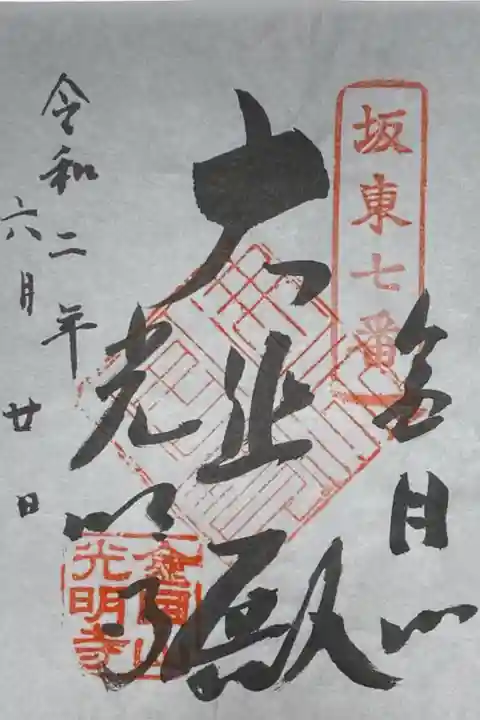 坂東七番
金目山
大悲殿
光明寺
令和二年
六月廿日
金目山
光明寺